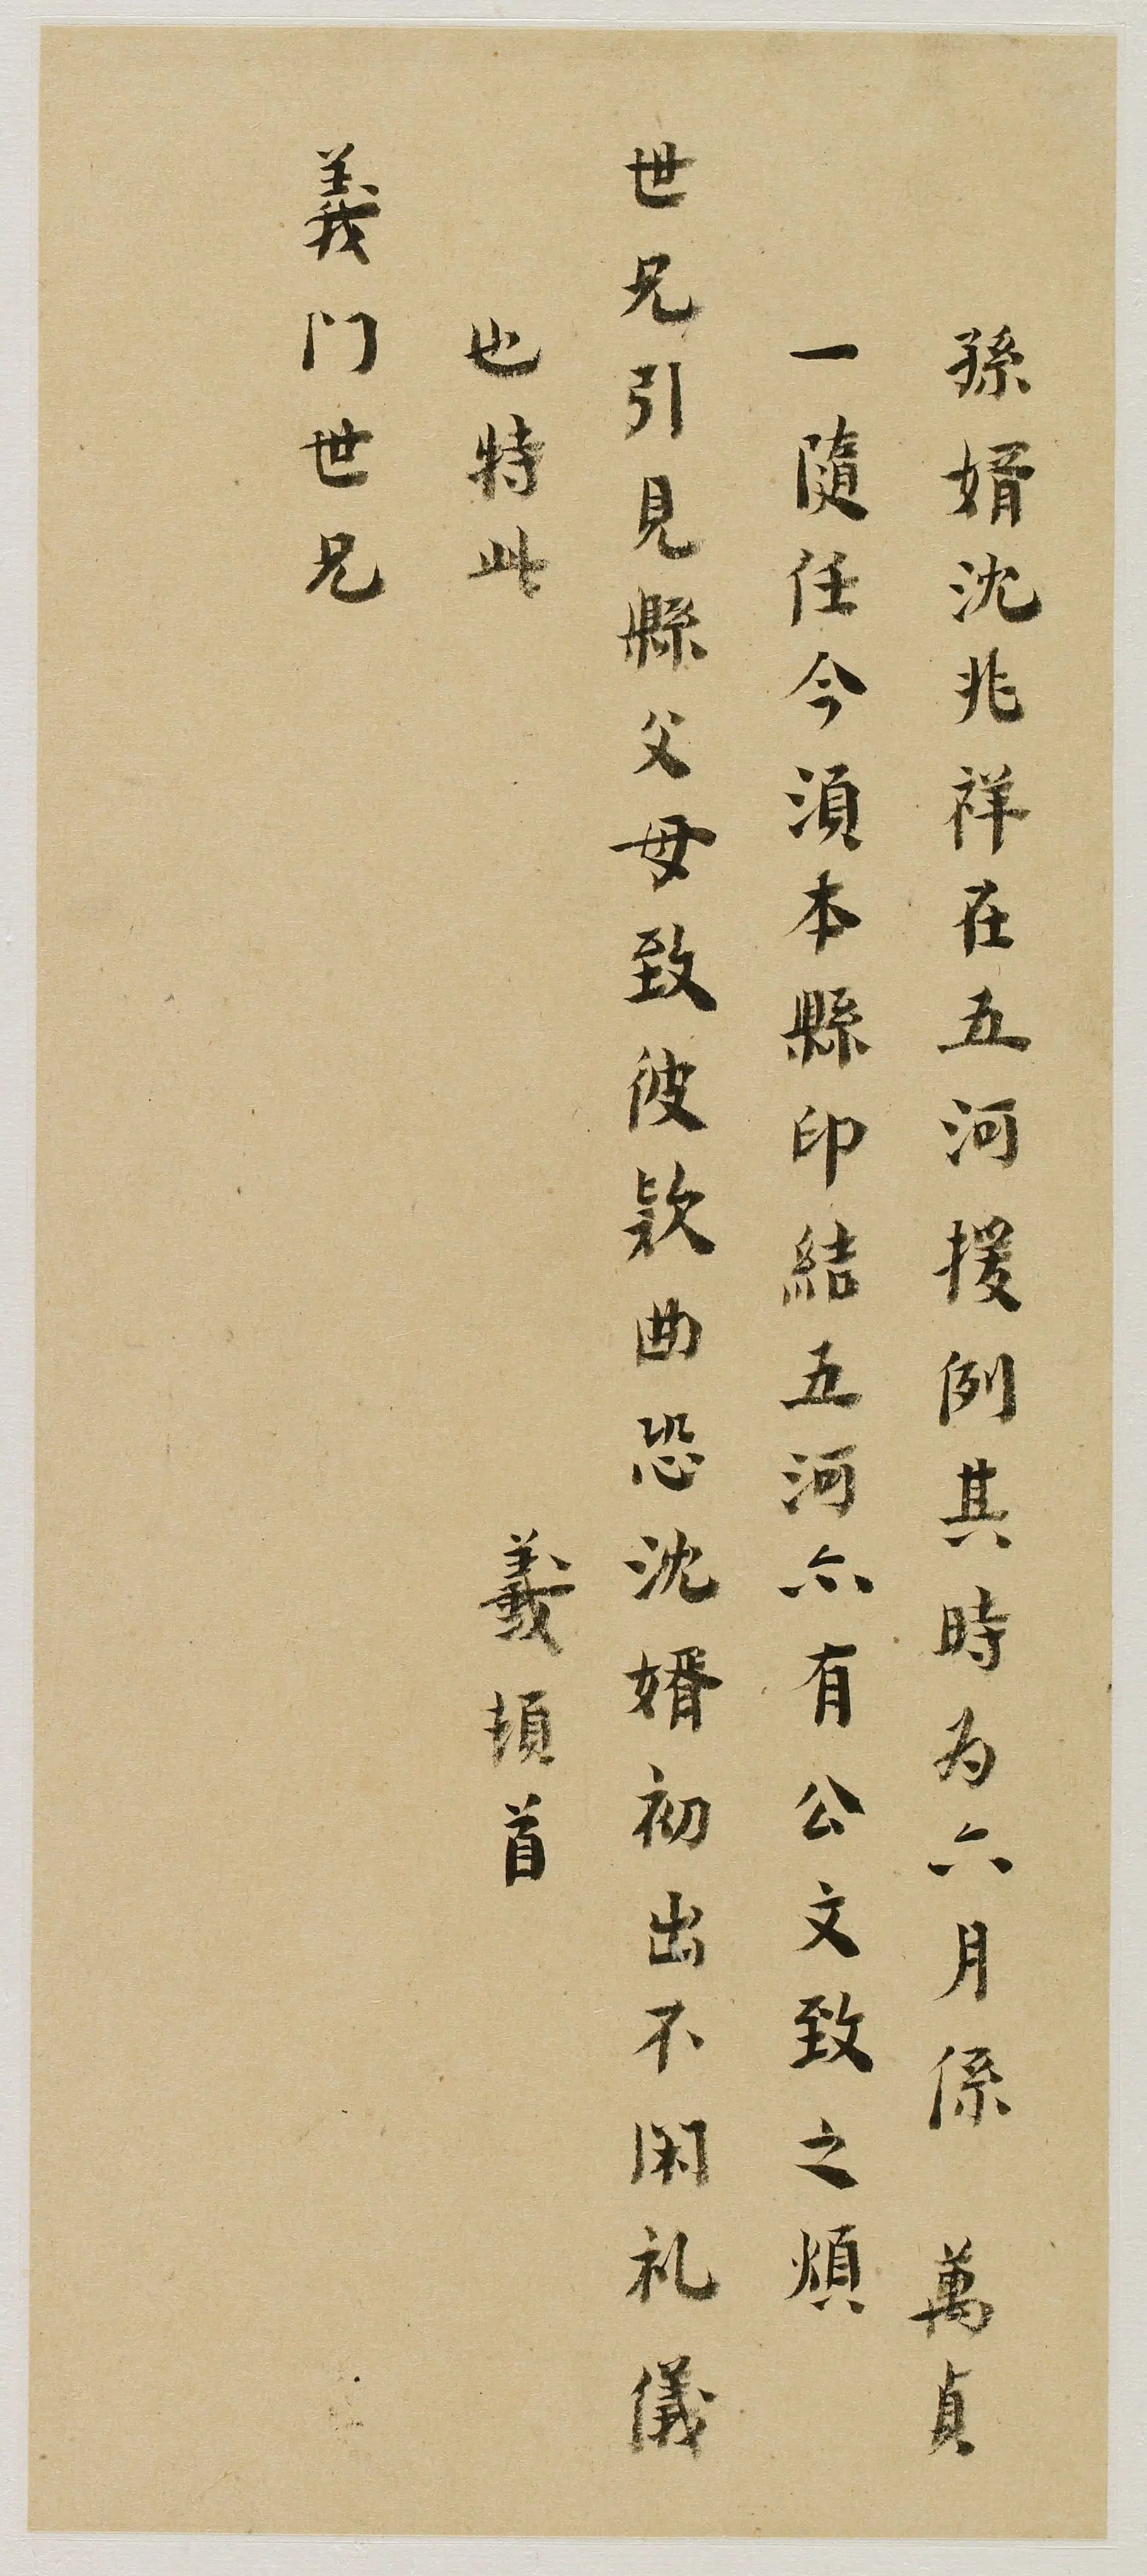 孫婿沈兆祥在五河援例其時為六月係 萬貞
一隨任今須本縣印結五河亦有公文致之煩
世兄引見縣父母致彼款曲恐沈婿初出不閑礼儀
也特此
羲頓首
義門世兄